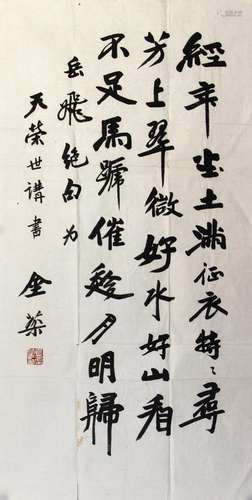 經年尘土滿征衣特〻尋
芳上翠微好水好山看
不足馬蹏催趂月明歸
岳飛絕句为
天榮世講書